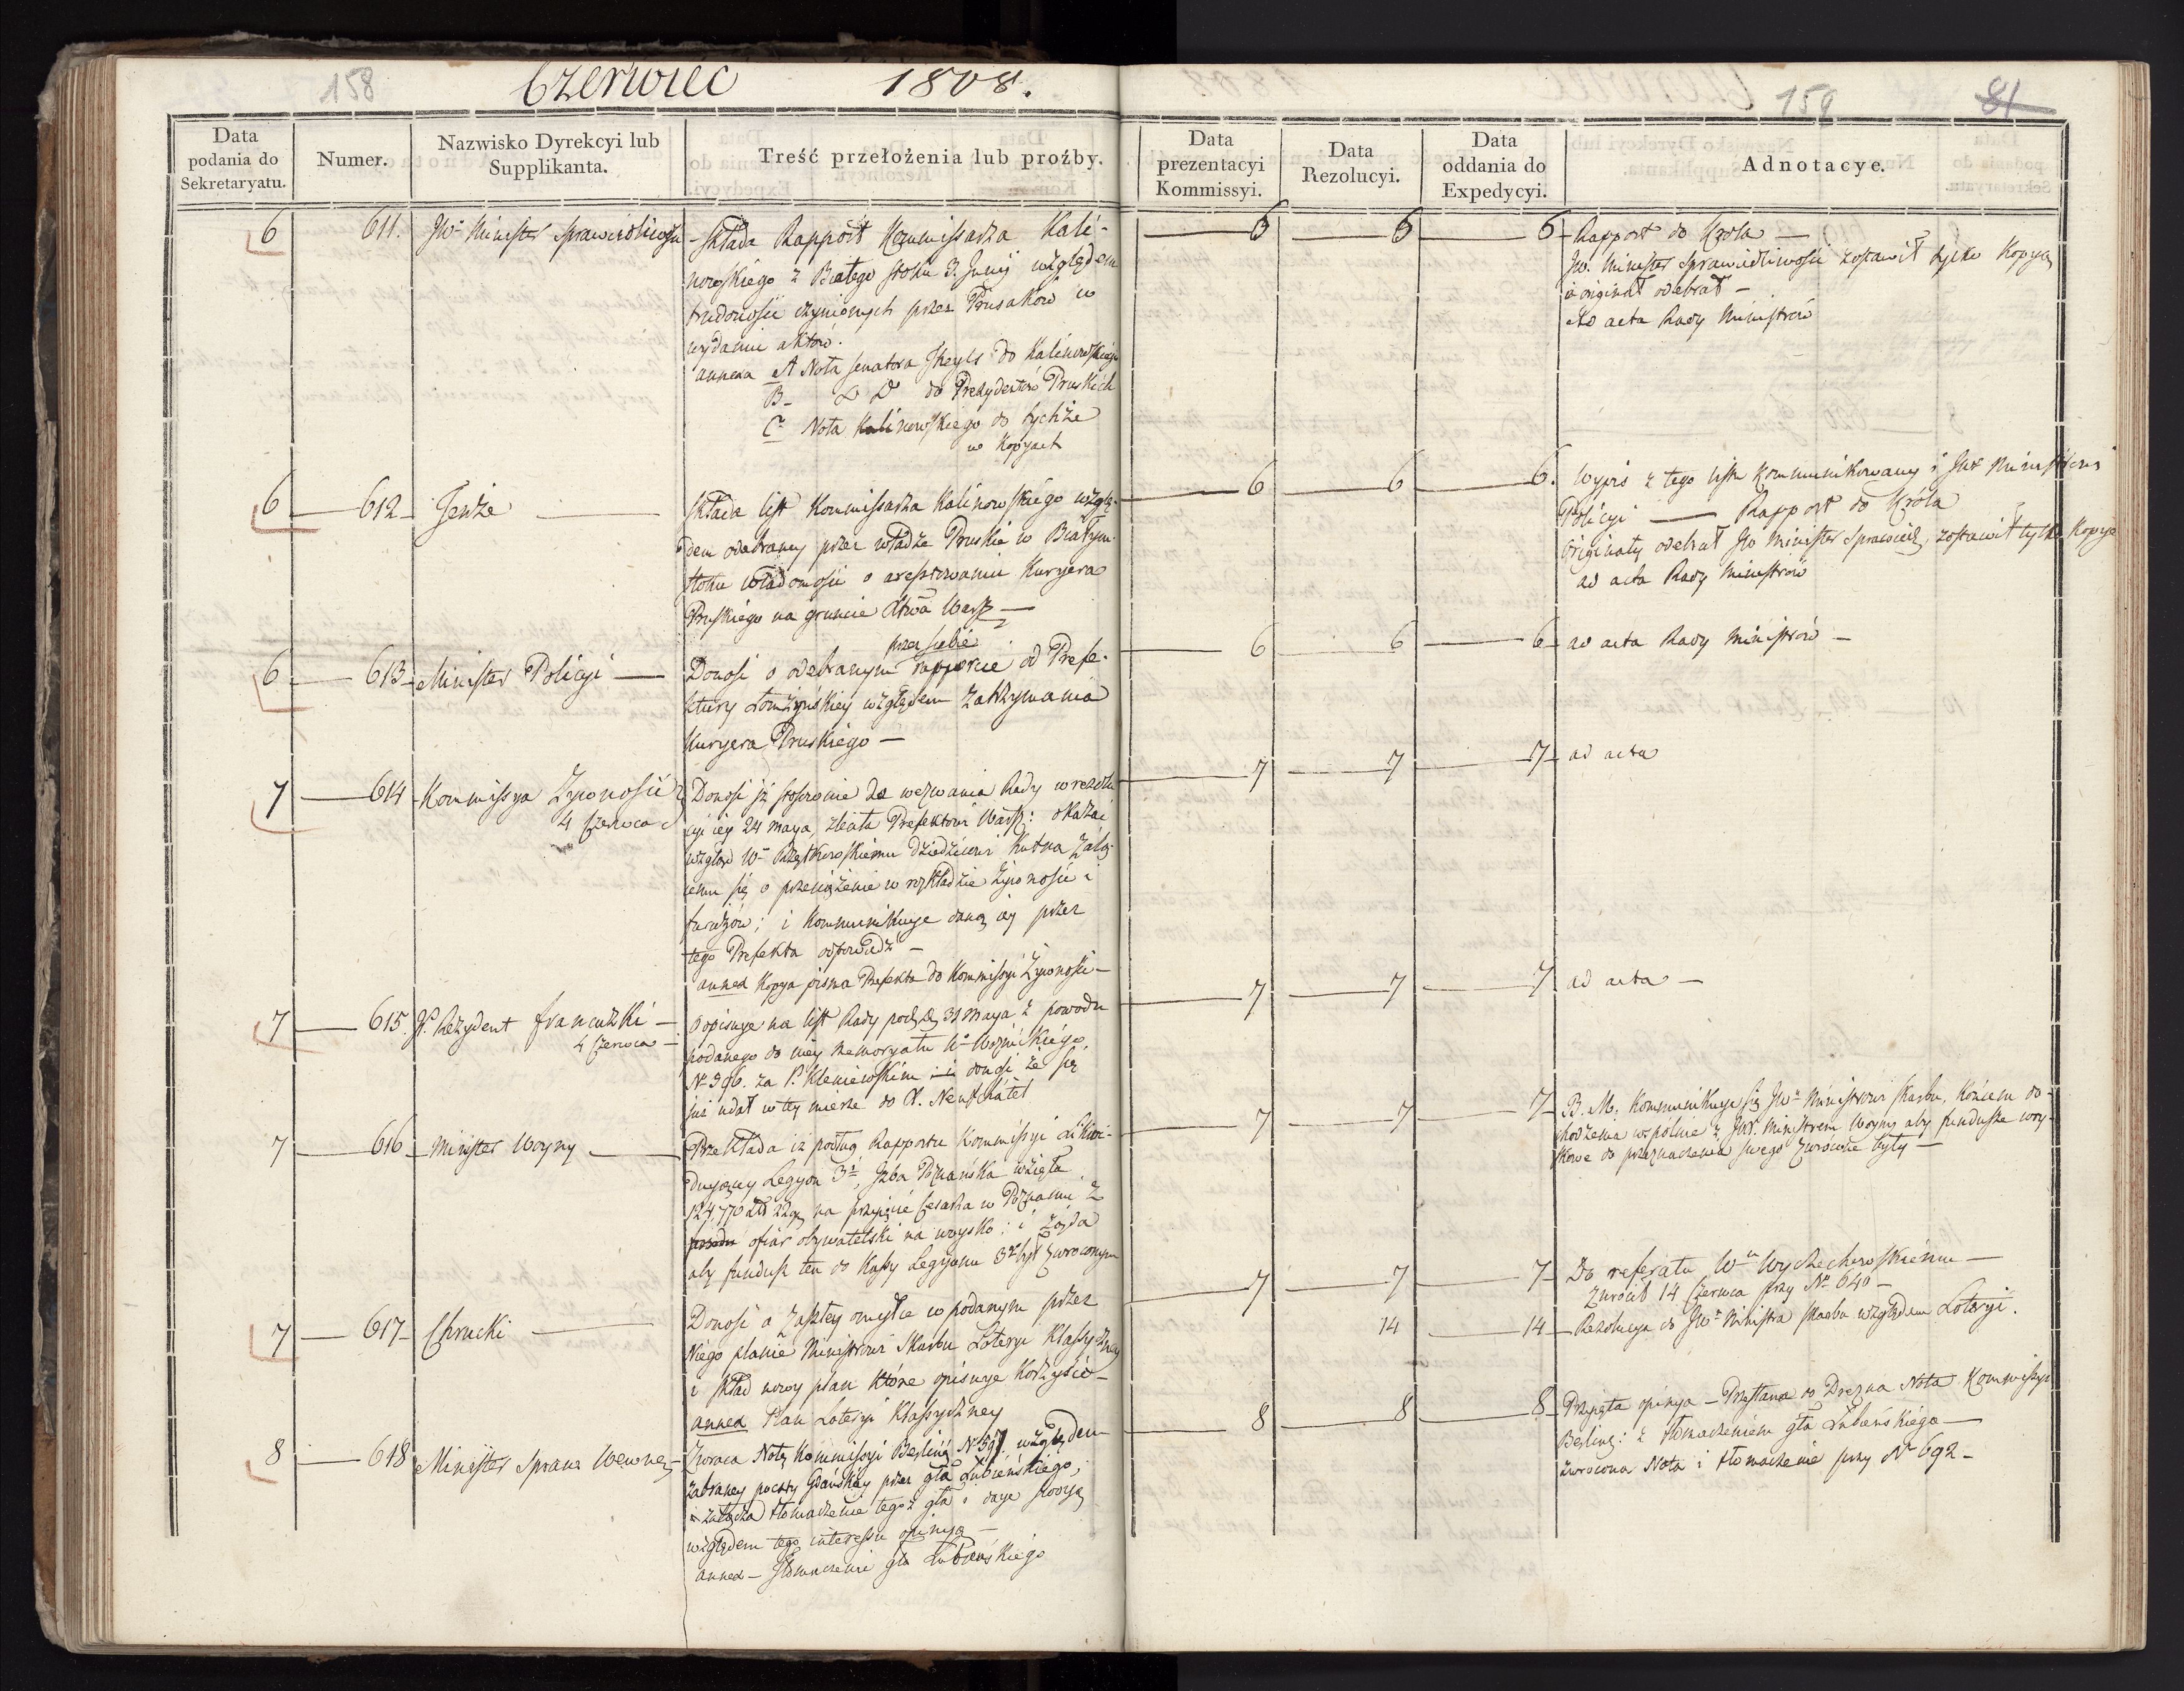 158
Czerwiec 1808.
Data podania do Sekretaryatu.
Numer.
Nazwisko Dyrekcyi lub Supplikanta.
Treść przełożenia lub proźby.
6 611. JWº Minister Sprawiedliwości
Składa Rapport Kommissarza Kali-
nowskiego z Białego stoku 3. Junij względem
trudności czynionych przez Prusaków w
wydaniu aktów.
annexa A Nota Senatora do Kalinowskiego
B - D Dº do Prezydentów Pruskich
C Nota Kalinowskiego do tychże
w Kopyach
6 612 Tenże
Składa list Kommissarza Kalinowskiego wzglę-
dem odebraney przez władze Pruskie w Białym
stoku wiadomości o aresztowaniu Kuryera
Pruskiego na gruncie Xtwa Warsz
6 613 Minister Policyi
przez siebie
Donosi o odebranym rapporcie od Prefe-
ktury Łomżyńskiey względem zatrzymania
Kuryera Pruskiego
7 614 Kommissya Żywności
4 Czerwca
Donosi iż stosownie do wezwania Rady w rezolu
cyi iey 24 maya, zleciła Prefektowi Warsz: okazać
wzgląd Wº dziedzicowi Kutna żalą-
cemu się o przeciążenie w rozkładzie żywności i
furażów; i kommunikuje daną iey przez
tego Prefekta odpowiedź -
annex Kopya pisma Prefekta do Kommissyi Żywności -
7 615. JP. Rezydent francuzki
4 Czerwca
Odpisuje na list Rady pod 31 maya z powodu
podanego do niey memoryału Wº
Nº 396. za P. Kleniewskim i donosi że się
już udał w tey mierze do X. Neufchâtel
7 616 Minister Woyny
Przekłada iż podług Rapportu Kommissyi Likwi-
duyącey Legyon 3i, Izba Poznańska wzięła
124,770 22 na przyięcie Cesarza w Poznaniu z
ofiar obywatelski na woysko: i żąda
aby fundusz ten do Kassy Legyonu 3º był zwroconym
7 617 Chrucki
Donosi o zaszłey omyłce w podanym przez
Niego planie Ministrowi Skarbu Loteryi Klassyczney
i skład nowy plan które opisuje Korzyście -
annex Plan Loteryi Klassyczney
8 618 Minister Spraw Wewnę
Zwraca Notę Kommissyi Berliń Nº 597. względem
zabraney poczty Gdańskiey przez gła Łubieńskiego,
załącza tłomaczenie tegoż gła i daje swoyą
względem tego interessu opinyą -
annex - tłomaczenie gła Łubieńskiego
158
81
Data prezentacyi Kommissyi.
Data Rezolucyi.
Data oddania do Expedycyi.
Adnotacye.
6 6 6 Rapport do Króla -
JW. Minister Sprawiedliwości zostawił tylko Kopyą
a originał odebrał -
Ad acta Rady Ministrów
6 6 6. Wypis z tego listu kommunikowany JWº Ministrowi
Policyi - Rapport do Króla
Originały odebrał JW Minister Sprawiedl, zostawił tylko Kopye
ad acta Rady Ministrów
6 6 6 ad acta Rady Ministrów -
7 7 7 ad acta
7 7 7 ad acta -
7 7 7 B. M. Kommunikuje się JWº Ministrowi Skarbu, końcem do-
chodzenia wspólnie z JWº Ministrem Woyny aby fundusze woy-
skowe do przeznaczenia swego zwrócone były -
7 7 7 Do referatu Wº Wyczechowskiemu -
Zwrócił 14 Czerwca przy Nº 640 -
14 14 Rezolucya do JWº Ministra Skarbu względem Loteryi.
8 8 8 Przyięta opinya - Przesłana do Drezna Nota Kommissyi
Berliń: z tłomaczeniem gła Łubieńskiego -
zwrócona Nota i tłomaczenie przy Nº 692 -